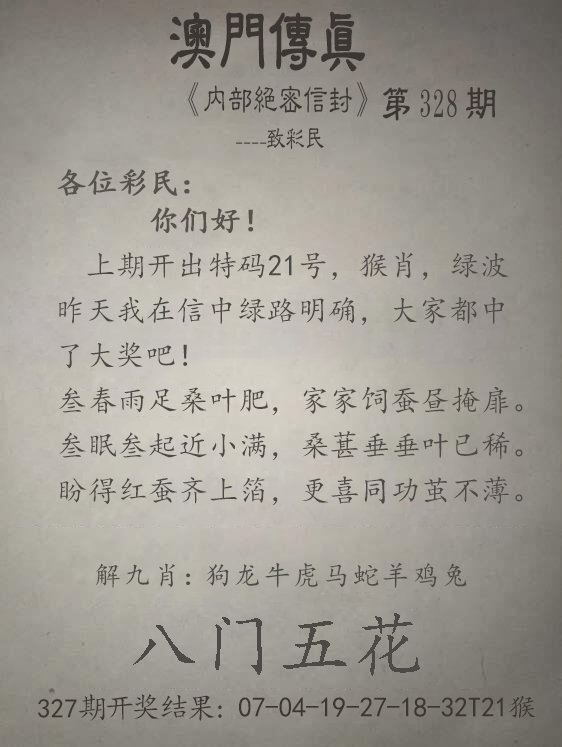 澳門傳真
《内部絕密信封》第328期
----致彩民
各位彩民：
你们好！
上期开出特码21号，猴肖，绿波
昨天我在信中绿路明确，大家都中
了大奖吧！
叁春雨足桑叶肥，家家饲蚕昼掩扉。
叁眠叁起近小满，桑葚垂垂叶已稀。
盼得红蚕齐上箔，更喜同功茧不薄。
解九肖：狗龙牛虎马蛇羊鸡兔
八门五花
327期开奖结果：07-04-19-27-18-32T21猴